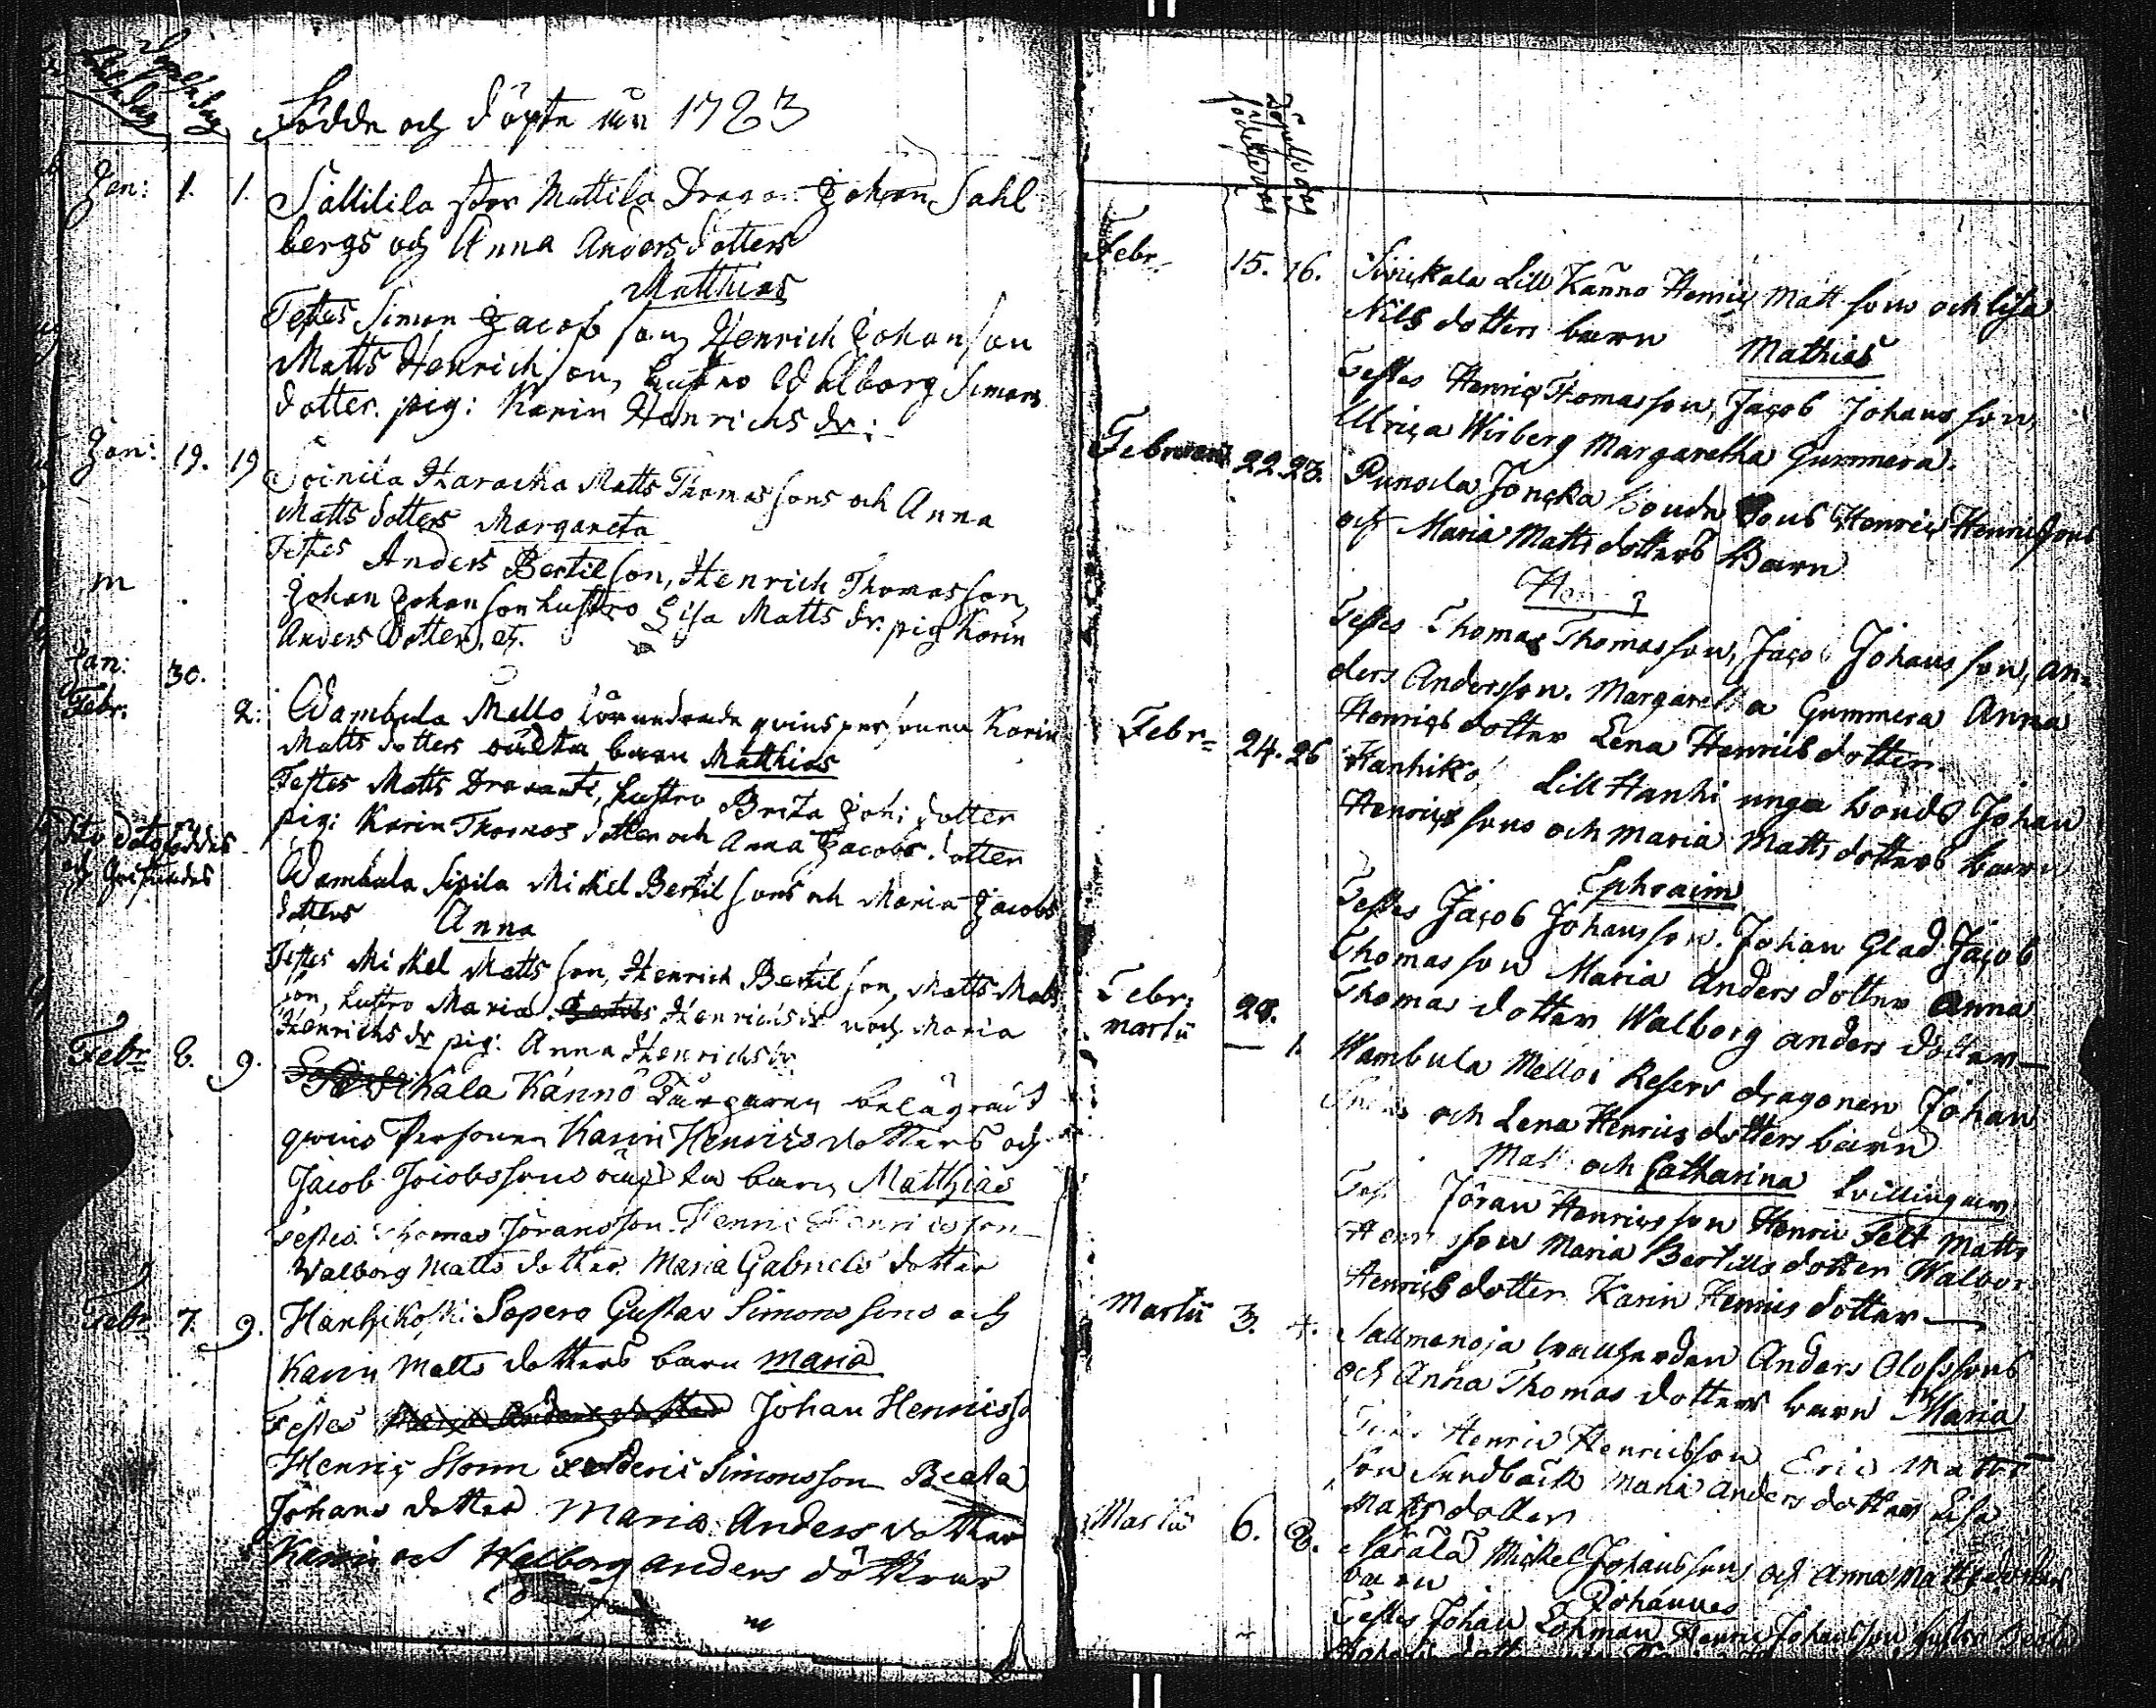 Födelsedag
Döpelsedag
Födde och döpte år 1783
Jan: 1. 1. Sallilila stor Mattila Dragon Johan Sahl
bergs och Anna Anders dotters
Matthias
Testes Simon Jacobson, Henrich Johanson
Matts Henrichson, hustro Walborg Simons
dotter. pig: Karin Henrichs dr:
Jan: 19. 19 Soinila Haracka Matts Thomassons och Anna
Matts dotters Margareta
Testes Anders Bertilson, Henrich Thomasson,
Johan Johanson hustro Lisa Matts dr. pig Karin
Anders dotter. etc.
Jan: 30.
Febr. 2: Wambula Mello qvinspersonen Karin
Matts dotters oäkta barn Matthias
Testes Matts Dravanti, hustro Brita Joh: dotter
pig: Karin Thomas dotter och Anna Jacobs dotter
Isto dato föddes
och
Wambula Sipila Mickel Bertilsons och Maria Jacobs
dotters Anna
Testes Mickel Mattsson, Henrich Bertilson, Matts Matts
son, hustro Maria Henrichs dr och Maria
Henrichs dr pig: Anna Henrichs dr
Febr 8. 9. Kala Kännö belägrade
qwins Personen Karin Henrics dotters och
Jacob Jacobssons oächta barn Matthias
Testes Thomas Göransson Henric Henricsson
Valborg Matts dotter Maria Gabriels dotter
Febr 7. 9. Hanhikoski Sopero Gustav Simons sons och
Karin Matts dotters barn Maria
Testes Johan Henricsso
Henric Storm Simonsson Beata
Johans dotter Maria Anders dotter
Karin och Walborg anders döttrar
Födelsedag
Döpelsedag
Febr. 15. 16. Sirickala Lill Kännö Henric Matts sons och Lisa
Nils dotters barn Mathias
Testes Henric Thomasson, Jacob Johansson,
Ulrica Wirberg Margaretha Gummera.
Februarii 22 23. Punola Joncka bonde Sons Henric Henricsons
och Maria Matts dotters Barn
Testes Thomas Thomasson, Jacob Johansson, An=
ders Andersson. Margaretha Gummera Anna
Henrics dotter Lena Henrics dotter.
Febr= 24. 26 Hanhiko Lill Hanhi unga bonde Johan
Henrics sons och Maria Matts dotters barn
Ephraim
Testes Jacob Johansson, Johan Glad Jacob
Thomasson Maria Anders dotter Anna
Thomas dotter Walborg anders dotter—
Febr: 28.
Martii — 1. Wambula Mellois Reserv dragonen Johan
och Lena Henrics dotters barn
Matts och Catharina tvillingar
Göran Henricsson Henric Felt Matts
Henricsson Maria Bertills dotter Walbor
Henrics dotter Karin Henrics dotter—
Martii 3. 4. Sallmenoja Anders Olofssons
och Anna Thomas dotters barn Maria
Testes Henric Henricsson Eric Matts
son Sundbäck Maria anders dotter Lisa
Matts dotter
Martii 6. 8. Mickel Johanssons och Anna Matts dotters
barn Johannes
Testes Johan Lohman Henric Johansson hustro Beata